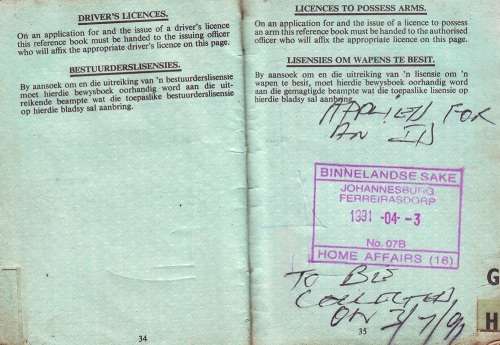 DRIVER'S LICENCES.
On an application for and the issue of a driver's licence
this reference book must be handed to the issuing officer
who will affix the appropriate driver's licence on this page.
BESTUURDERSLISENSIES.
By aansoek om en die uitreiking van 'n bestuurderslisensie
moet hierdie bewysboek oorhandig word aan die uit-
reikende beampte wat die toepaslike bestuurderslisensie
op hierdie bladsy sal aanbring.
34
LICENCES TO POSSESS ARMS.
On an application for and the issue of a licence to possess
an arm this reference book must be handed to the authorised
officer who will affix the appropriate licence on this page.
LISENSIES OM WAPENS TE BESIT.
By aansoek om en die uitreiking van 'n lisensie om 'n
wapen te besit, moet hierdie bewysboek oorhandig word
aan die gemagtigde beampte wat die toepaslike lisensie op
hierdie bladsy sal aanbring.
APPLIED FOR
AN ID
BINNELANDSE SAKE
JOHANNESBURG
FERREIRASDORP
1991 -04- -3
No. 07B
HOME AFFAIRS (16)
TO BE
COLLECTED
ON 3/7/91
35
G
H